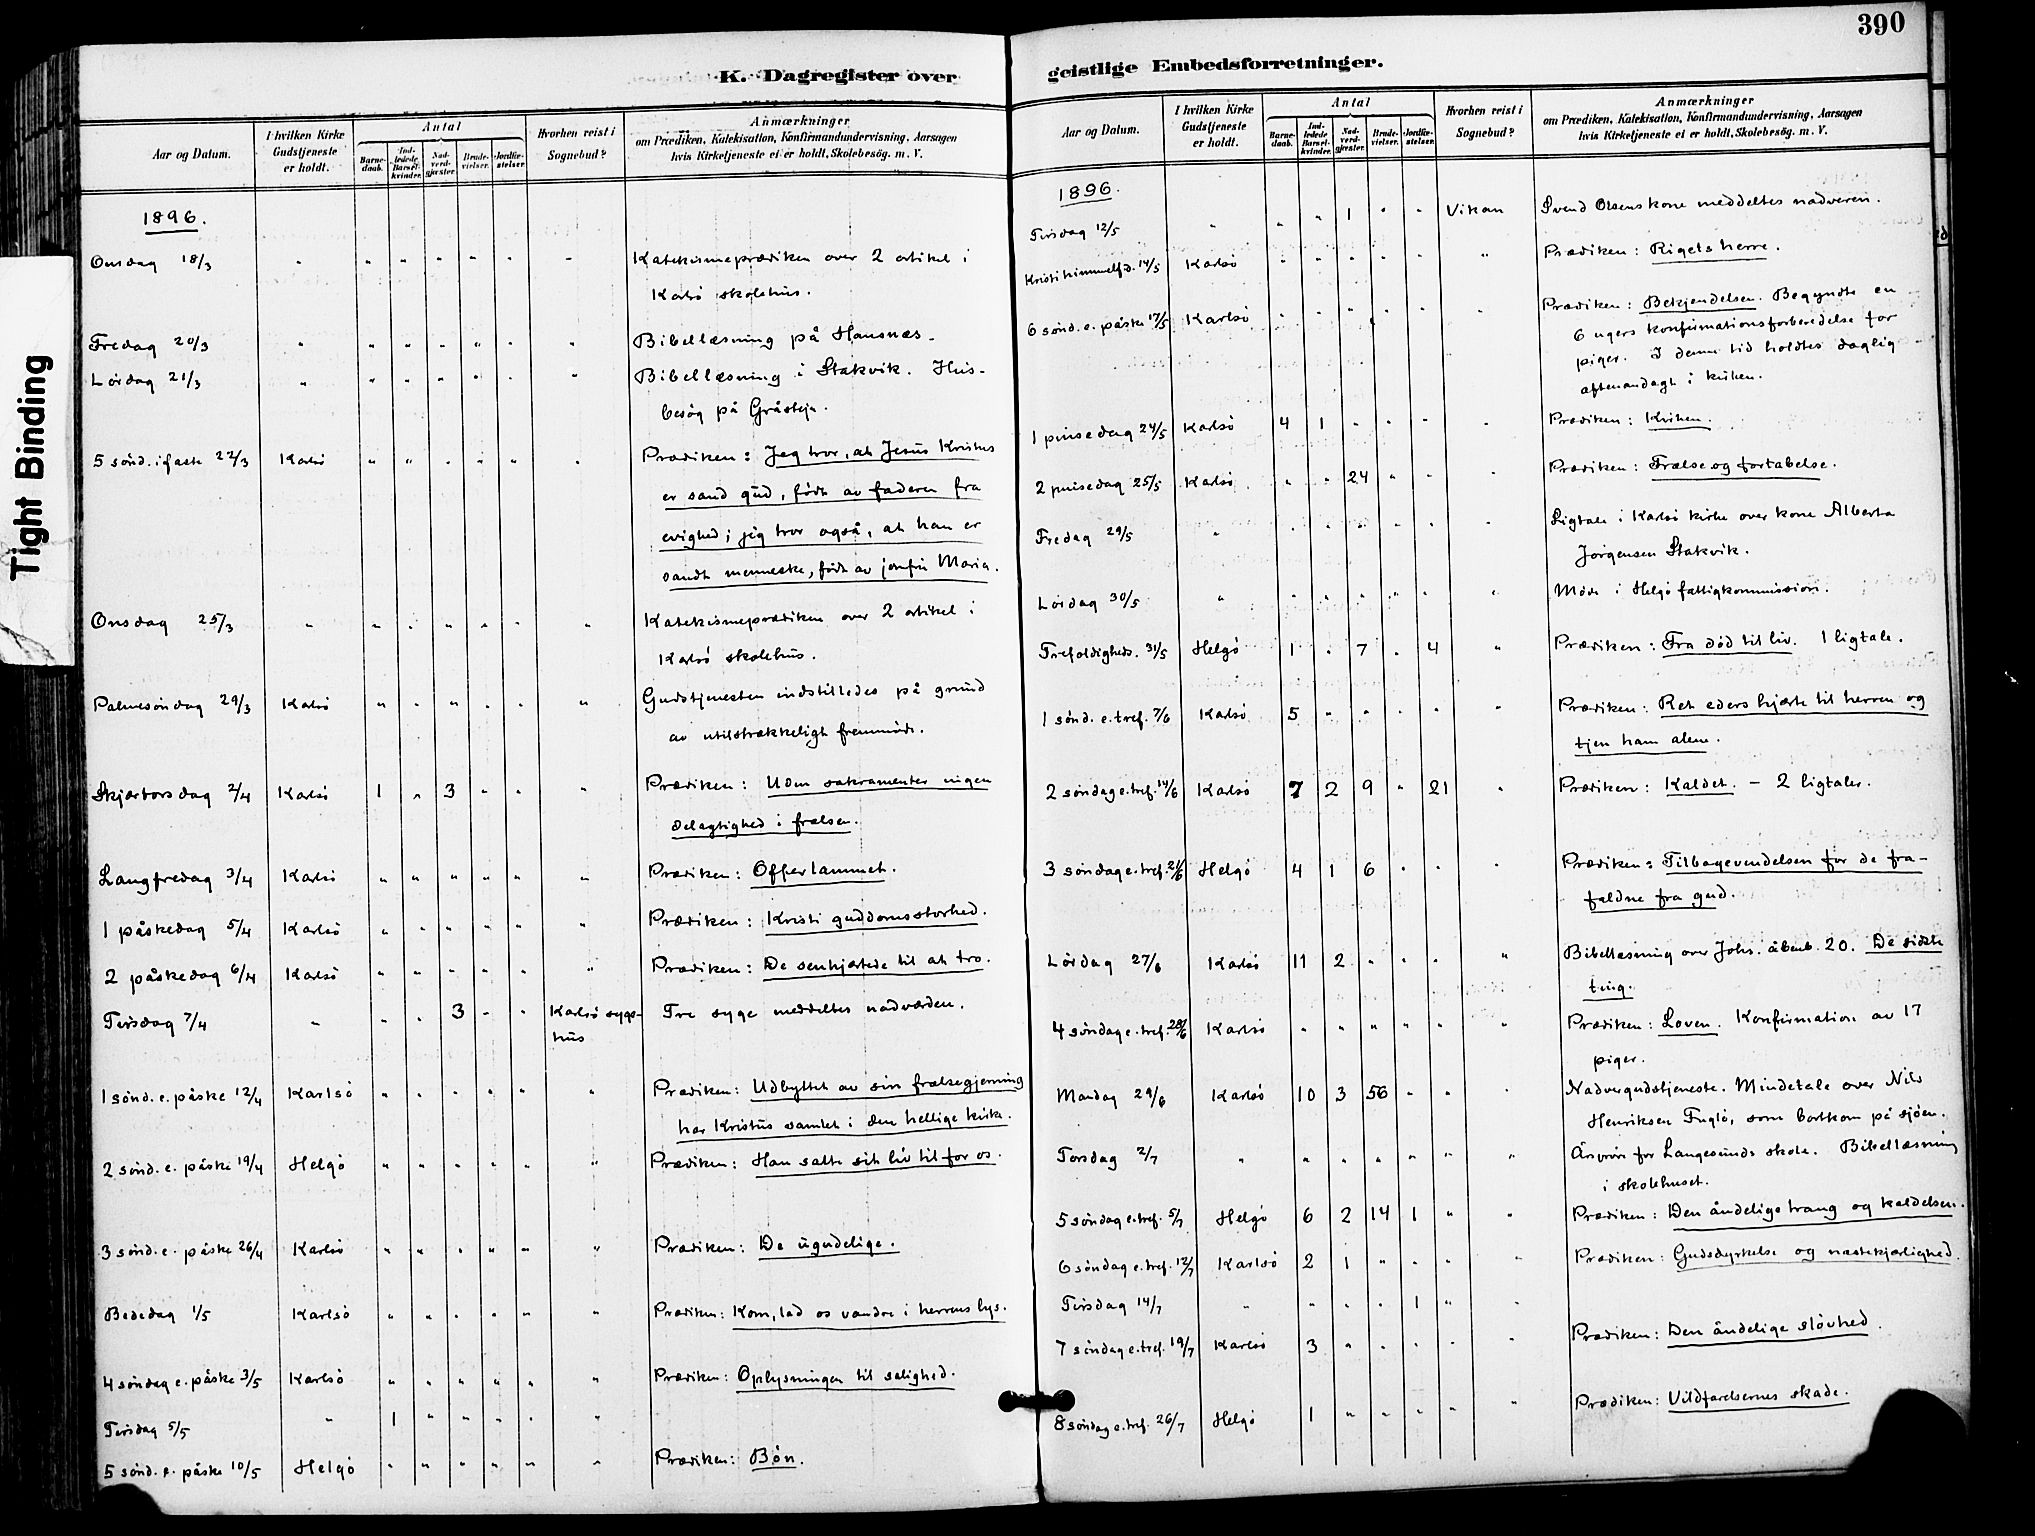 390
K. Dagregister over
geistlige Embedsforretninger.
Tight Binding
Aar og Datum.
I hvilken Kirke Gudstjeneste er holdt.
Antal
Barnedaab.
Indledede Barselkvinder.
Nadverdgjæster.
Brudevielser.
Jordfæstelser.
Hvorhen reist i Sognebud?
Anmærkninger
om Prædiken, Katekisation, Konfirmandundervisning, Aarsagen
hvis Kirketjeneste ei er holdt, Skolebesög. m. V.
1896.
Onsdag 18/3 " " " " " " " Katekismeprædiken over 2 artikel i
Karlsö skolehus.
Fredag 20/3 " " " " " " " Bibellæsning på Hansnæs.
Lördag 21/3 " " " " " " " Bibellæsning i Stakvik. Hus-
besög på Gråsteju.
5 sönd. i faste 22/3 Karlsö " " " " " " Prædiken: Jeg tror, at Jesus Kristus
er sand gud, födt av faderen fra
evighed; jeg tror også, at han er
sandt menneske, födt av jomfru Maria.
Onsdag 25/3 " " " " " " " Katekismeprædiken over 2 artikel i
Karlsö skolehus.
Palmesöndag 29/3 Karlsö " " " " " " Gudstjenesten indstilledes på grund
av utilstrækkeligt fremmöde.
Skjærtorsdag 2/4 Karlsö 1 " 3 " " " Prædiken: Uden sakramenter ingen
delagtighed i frelsen.
Langfredag 3/4 Karlsö " " " " " " Prædiken: Offerlammet.
1 påskedag 5/4 Karlsö " " " " " " Prædiken: Kristi guddomsstorhed.
2 påskedag 6/4 Karlsö " " " " " " Prædiken: De senhjærtede til at tro.
Tirsdag 7/4 " " " 3 " " Karlsö syge- Tre syge meddeltes nadværden.
hus
1 sönd. e. påske 12/4 Karlsö " " " " " " Prædiken: Udbyttet av sin frelsegjerning
har Kristus samlet i den hellige kirke.
2 sönd. e. påske 19/4 Helgö " " " " " " Prædiken: Han satte sit liv til for os.
3 sönd. e. påske 26/4 Karlsö " " " " " " Prædiken: De ugudelige.
Bededag 1/5 Karlsö " " " " " " Prædiken: Kom, lad os vandre i herrens lys.
4 söndag e. påske 3/5 Karlsö " " " " " " Prædiken: Oplysningen til salighed.
Tirsdag 5/5 " 1 " " " " "
5 sönd. e. påske 10/5 Helgö " " " " " " Prædiken: Bön.
Aar og Datum.
I hvilken Kirke Gudstjeneste er holdt.
Antal
Barnedaab.
Indledede Barselkvinder.
Nadverdgjæster.
Brudevielser.
Jordfæstelser.
Hvorhen reist i Sognebud?
Anmærkninger
om Prædiken, Katekisation, Konfirmandundervisning, Aarsagen
hvis Kirketjeneste ei er holdt, Skolebesög. m. V.
1896.
Tirsdag 12/5 " " " 1 " " Vikan Svend Olsens kone meddeltes nadveren.
Kristi himmelfd. 14/5 Karlsö " " " " " " Prædiken: Rigets herre.
6 sönd. e. påske 17/5 Karlsö " " " " " " Prædiken: Bekjendelsen. Begyndte en
6 ugers konfirmationsforberedelse for
piger. I denne tid holdtes daglig
aftenandagt i kirken.
1 pinsedag 24/5 Karlsö 4 1 " " " " Prædiken: Kirken.
2 pinsedag 25/5 Karlsö " " 24 " " " Prædiken: Frelse og fortabelse.
Fredag 29/5 " " " " " " " Ligtale i Karlsö kirke over kone Alberta
Jörgensen Stakvik.
Lördag 30/5 " " " " " " " Möde i Helgö fattigkommission.
Trefoldigheds. 31/5 Helgö 1 " 7 " 4 " Prædiken: Fra död til liv. 1 ligtale.
1 sönd. e. tref. 7/6 Karlsö 5 " " " " " Prædiken: Ret eders hjærte til herren og
tjen ham alene.
2 söndag e. tref. 14/6 Karlsö 7 2 9 " 21 " Prædiken: Kaldet. – 2 ligtaler.
3 söndag e. tref. 21/6 Helgö 4 1 6 " " " Prædiken: Tilbagevendelsen for de fra-
faldne fra gud.
Lördag 27/6 Karlsö 11 2 " " " " Bibellæsning over Johs. åbenb. 20. De sidste
ting.
4 söndag e. tref. 28/6 Karlsö " " " " " " Prædiken: Loven. Konfirmation av 17
piger.
Mandag 29/6 Karlsö 10 3 56 " " " Nadvergudstjeneste. Mindetale over Nils
Henriksen Fuglö, som bortkom på sjöen.
Torsdag 2/7 " " " " " " " Årspröve for Langesunds skole. Bibellæsning
i skolehuset.
5 söndag e. tref. 5/7 Helgö 6 2 14 1 " " Prædiken: Den åndelige trang og kaldelsen.
6 söndag e. tref. 12/7 Karlsö 2 1 " " " " Prædiken: Gudsdyrkelse og næstekjærlighed.
Tirsdag 14/7 " " " " 1 " "
7 söndag e. tref. 19/7 Karlsö 3 " " " " " Prædiken: Den åndelige slövhed.
8 söndag e. tref. 26/7 Helgö 1 " " " " " Prædiken: Vildfarelsernes skade.